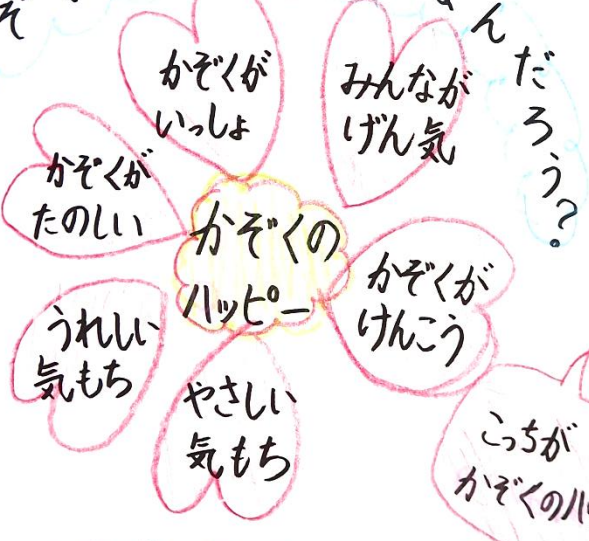 ぞ
んだろう?
かぞくが
いっしょ
みんなが
げん気
かぞくが
たのしい
かぞくの
ハッピー
かぞくが
けんこう
うれしい
気もち
やさしい
気もち
こっちが
かぞくのハ